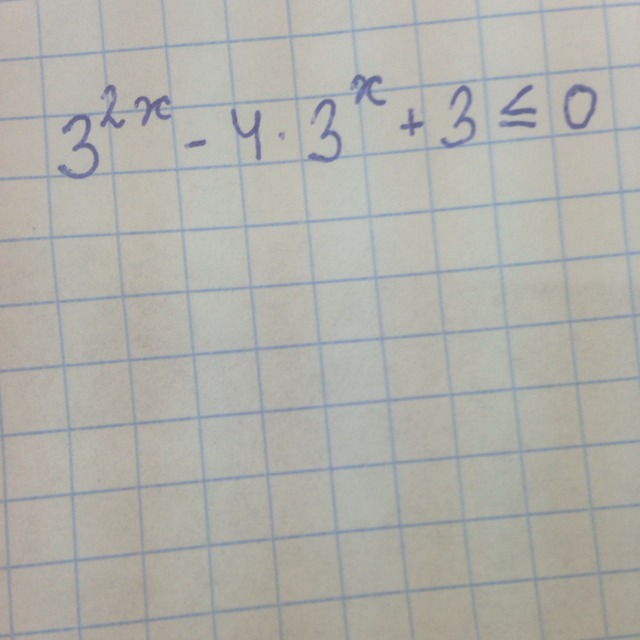 3^{2x} - 4 · 3^{x} + 3 ≤ 0